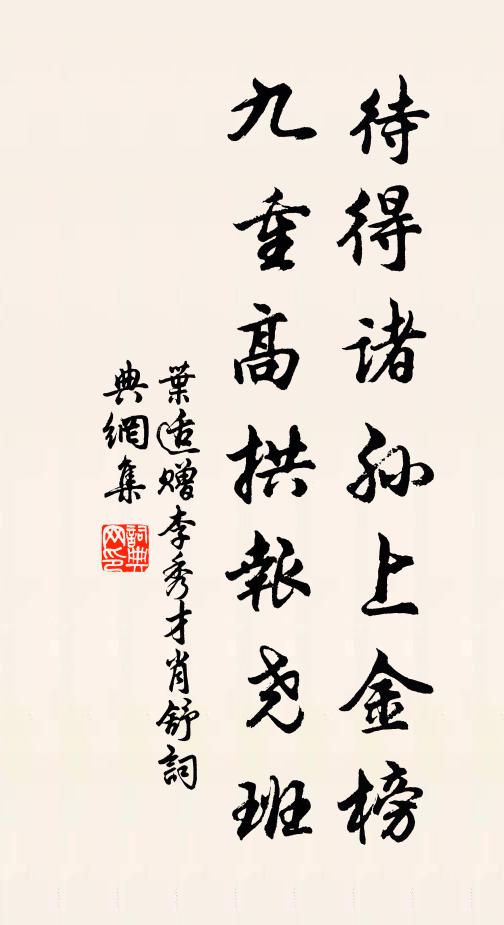 待得诸孙上金榜
九重高拱報尧班
葉适赠李秀才肖舒詞
典網集
詞典網印